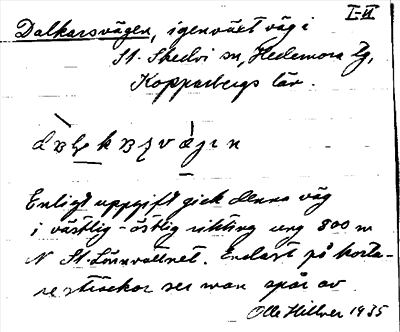 I-VI
Dalkarsvägen, igenväxt väg i
St. Skedvi sn, Hedemora tg,
Kopparbergs län.
Enligt uppgift gick denna väg
i västlig-östlig riktning ung 800 m
N St. Lönnvattnet. Endast på korta-
re sträckor ser man spår av
Olle Hillver 1935